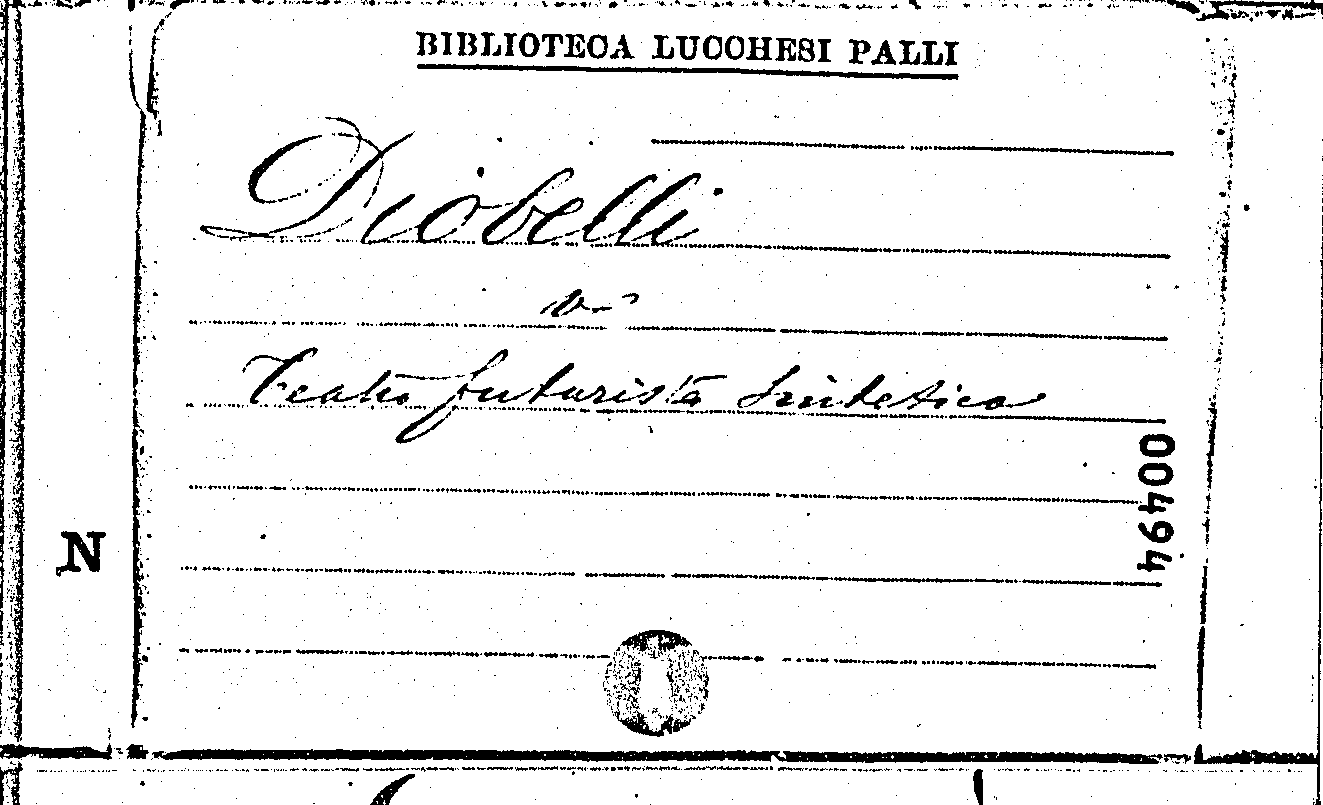 BIBLIOTECA LUCCHESI PALLI
Diobelli
v.
Teatro futurista sintetico
00494
N